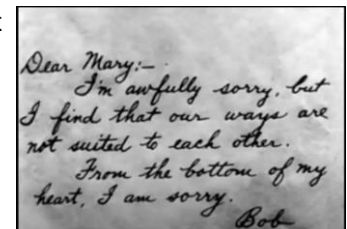 Dear Mary:—
I'm awfully sorry, but
I find that our ways are
not suited to each other.
From the bottom of my
heart, I am sorry.
Bob